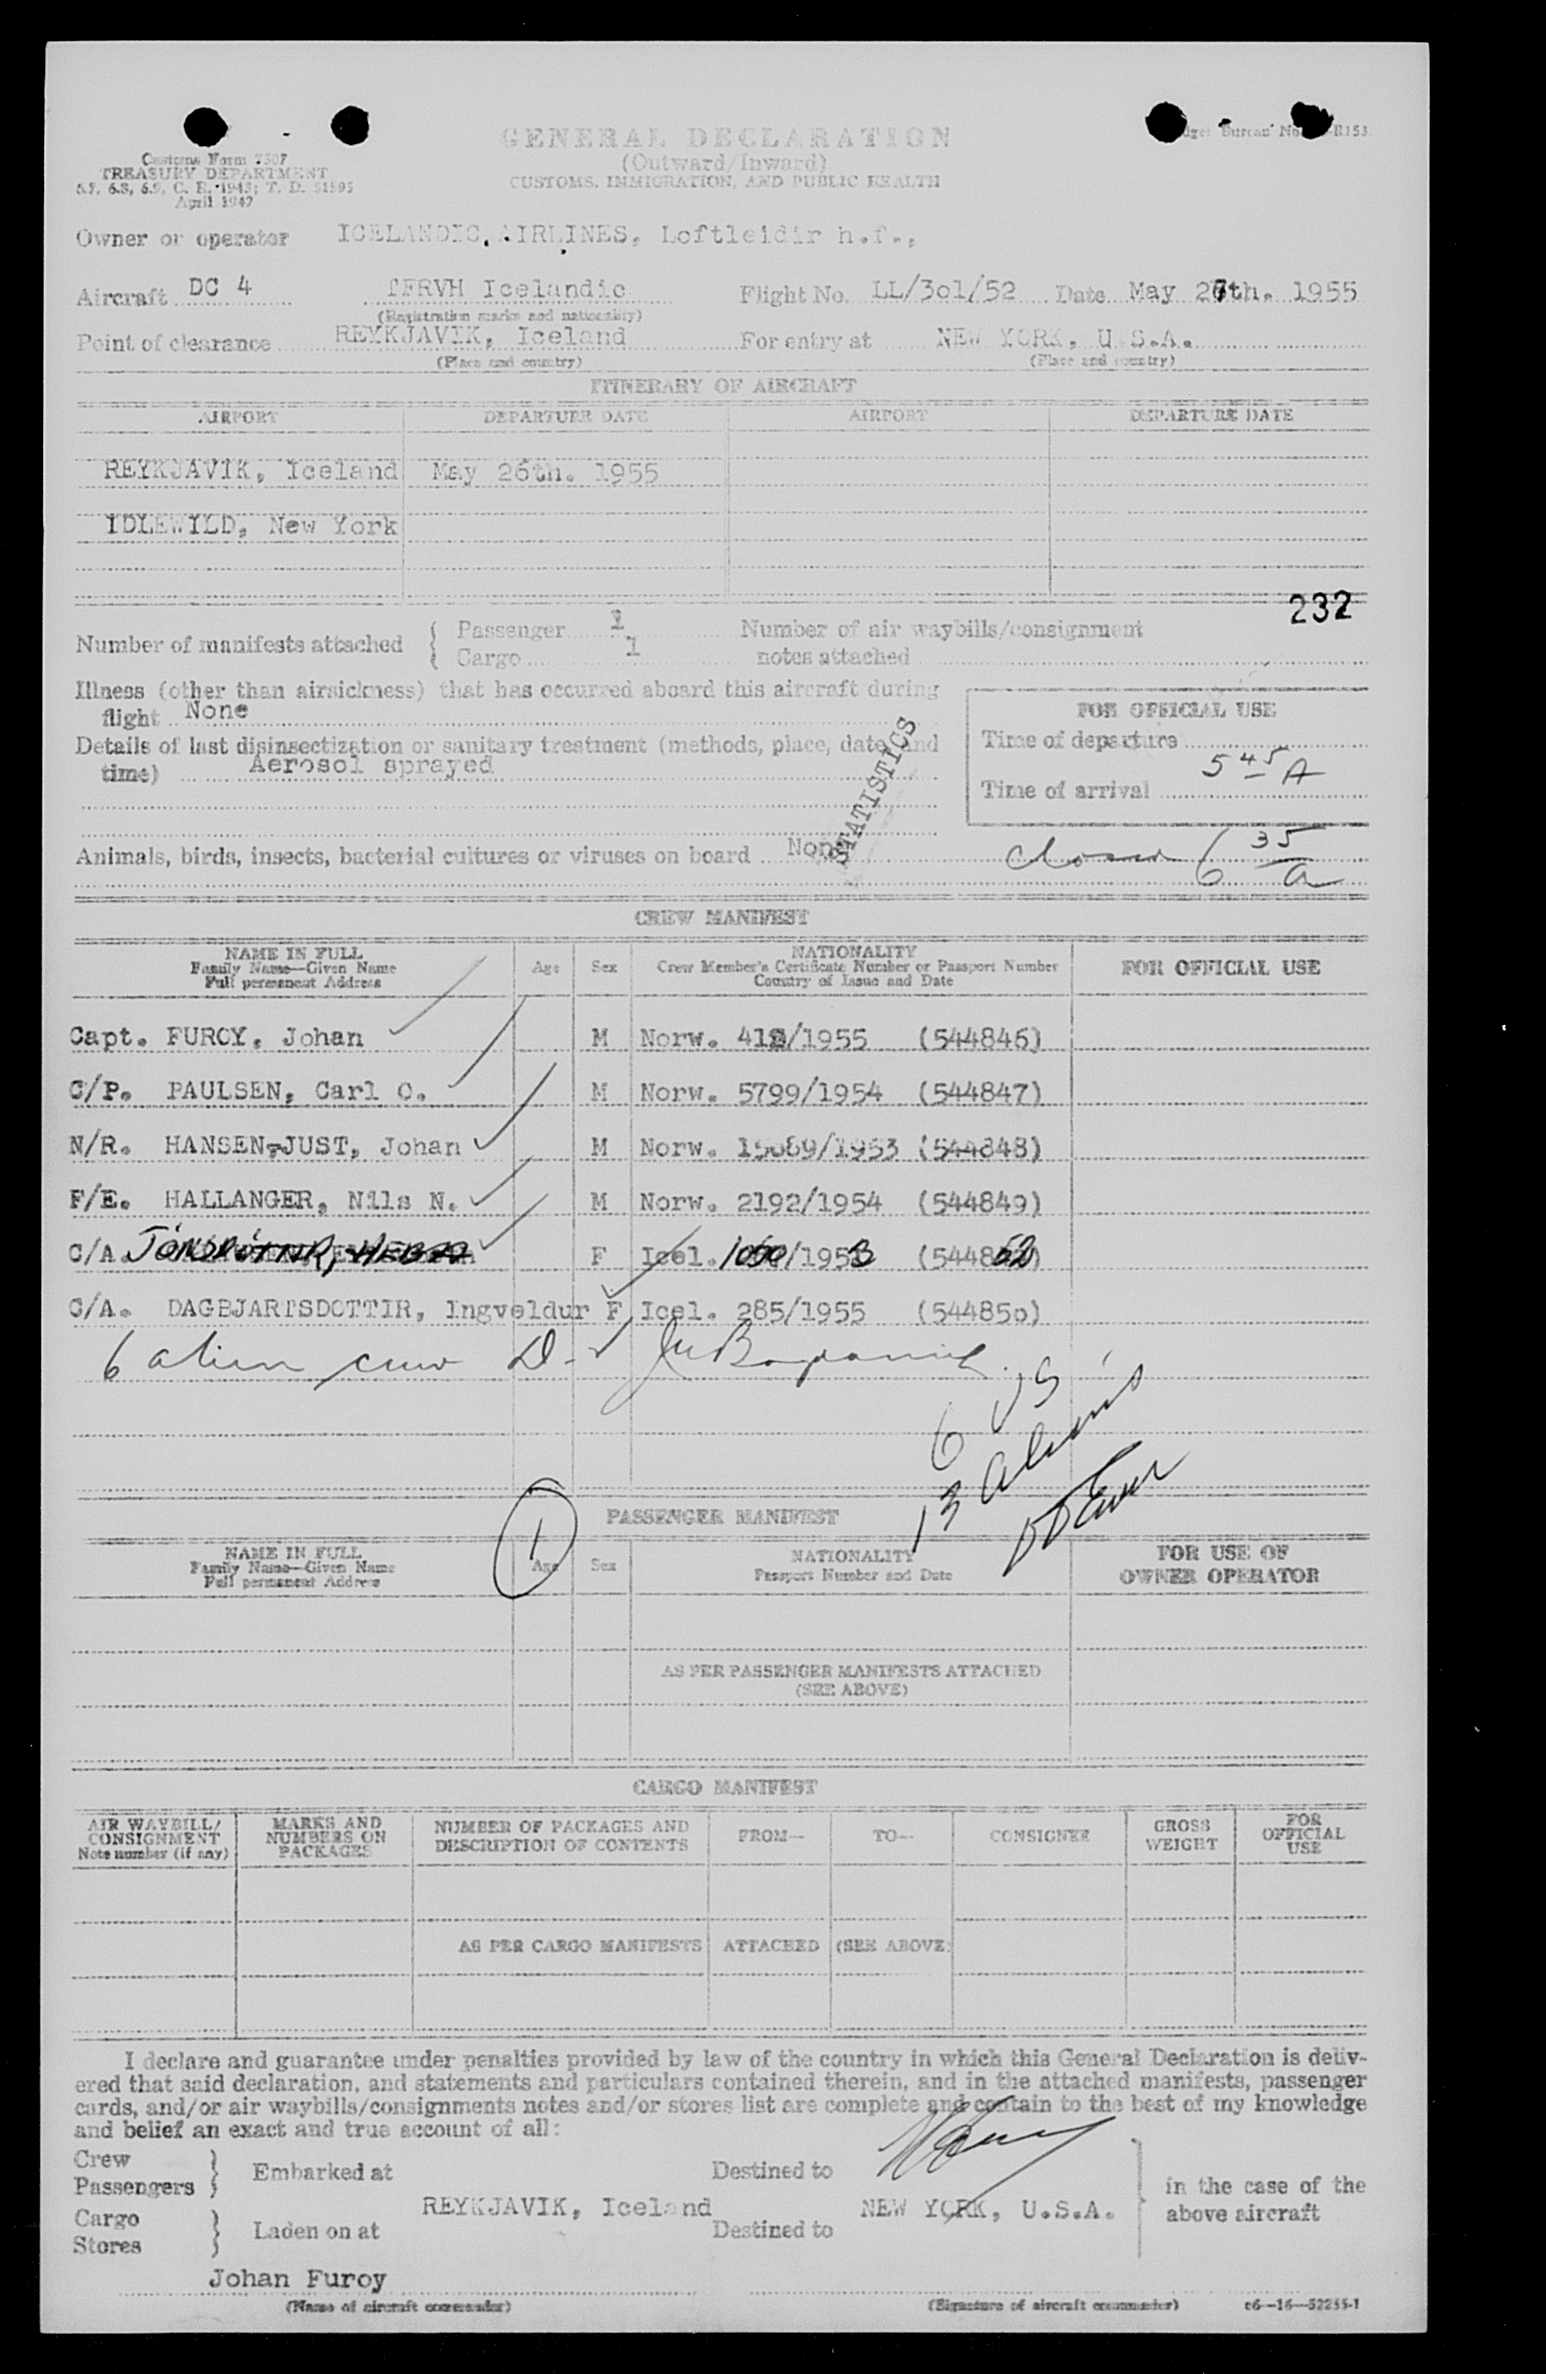 GENERAL DECLARATION
(Outward/Inward)
CUSTOMS, IMMIGRATION, AND PUBLIC HEALTH
Customs Form 7507
TREASURY DEPARTMENT
6.7, 6.8, 6.9, C. R. 1943; T. D. 51595
April 1947
Bureau No.
Owner or operator ICELANDIC AIRLINES, Loftleidir h.f.,
Aircraft DC 4 TFRVH Icelandic Flight No. LL/3o1/52 Date May 27th. 1955
(Registration marks and nationality)
Point of clearance REYKJAVIK, Iceland For entry at NEW YORK, U.S.A.
(Place and country) (Place and country)
ITINERARY OF AIRCRAFT
AIRPORT DEPARTURE DATE AIRPORT DEPARTURE DATE
REYKJAVIK, Iceland May 26th. 1955
IDLEWILD, New York
232
Number of manifests attached { Passenger 1 Number of air waybills/consignment
Cargo 1 notes attached
Illness (other than airsickness) that has occurred aboard this aircraft during
flight None
Details of last disinsectization or sanitary treatment (methods, place, date, and
time) Aerosol sprayed
STATISTICS
FOR OFFICIAL USE
Time of departure
Time of arrival 5 45 A
Animals, birds, insects, bacterial cultures or viruses on board None
6 35 a
CREW MANIFEST
NAME IN FULL
Family Name—Given Name
Full permanent Address
Age Sex
NATIONALITY
Crew Member's Certificate Number or Passport Number
Country of Issue and Date
FOR OFFICIAL USE
Capt. FUROY, Johan M Norw. /1955 (544846)
C/P. PAULSEN, Carl O. M Norw. 5799/1954 (544847)
N/R. HANSEN-JUST, Johan M Norw. 15089/1953 (544848)
F/E. HALLANGER, Nils N. M Norw. 2192/1954 (544849)
C/A. JÓNSDÓTTIR, F Icel. /1953 (544852)
C/A. DAGBJARTSDOTTIR, Ingveldur F Icel. 285/1955 (54485o)
6 alien crew D-1
6 US
13 Aliens
1
PASSENGER MANIFEST
NAME IN FULL
Family Name—Given Name
Full permanent Address
Age Sex
NATIONALITY
Passport Number and Date
FOR USE OF
OWNER OPERATOR
AS PER PASSENGER MANIFESTS ATTACHED
(SEE ABOVE)
CARGO MANIFEST
AIR WAYBILL/
CONSIGNMENT
Note number (if any)
MARKS AND
NUMBERS ON
PACKAGES
NUMBER OF PACKAGES AND
DESCRIPTION OF CONTENTS
FROM— TO— CONSIGNEE
GROSS
WEIGHT
FOR
OFFICIAL
USE
AS PER CARGO MANIFESTS ATTACHED (SEE ABOVE)
I declare and guarantee under penalties provided by law of the country in which this General Declaration is deliv-
ered that said declaration, and statements and particulars contained therein, and in the attached manifests, passenger
cards, and/or air waybills/consignments notes and/or stores list are complete and contain to the best of my knowledge
and belief an exact and true account of all:
Crew
Passengers } Embarked at Destined to
REYKJAVIK, Iceland NEW YORK, U.S.A.
Cargo
Stores } Laden on at Destined to
in the case of the
above aircraft
Johan Furoy
(Name of aircraft commander) (Signature of aircraft commander) c6—16—52255-1